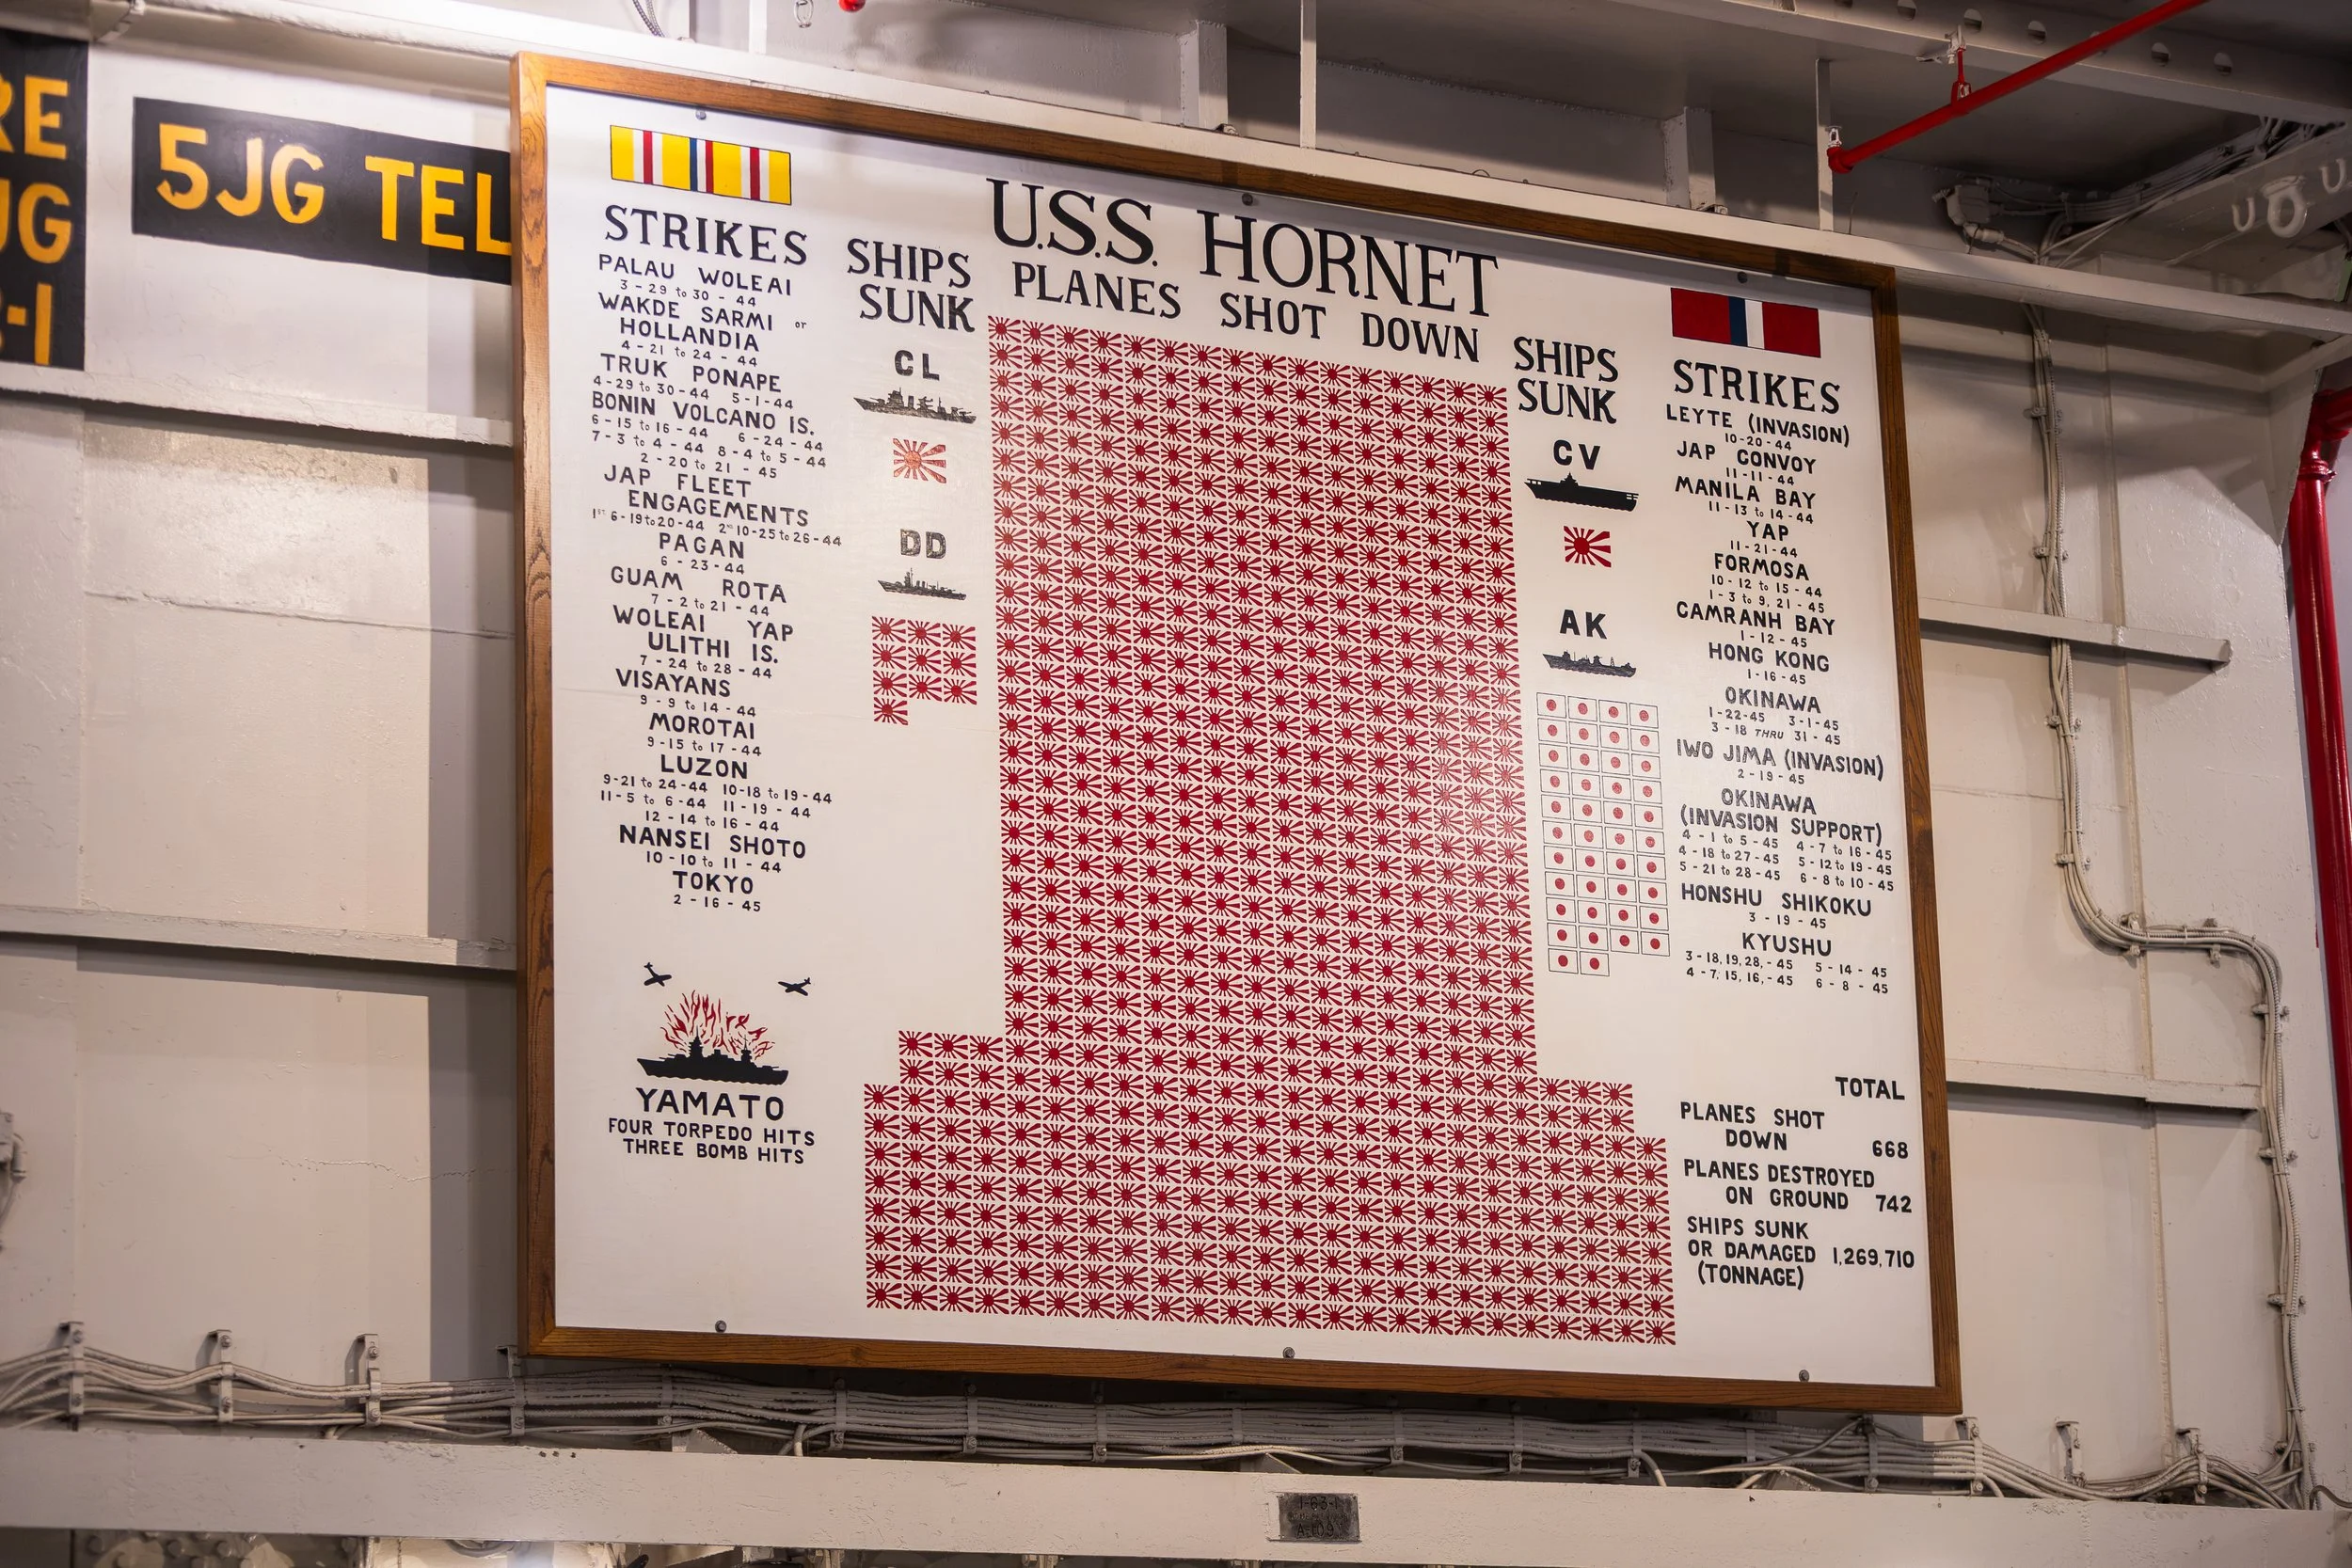 RE
JG
-1
5JG TEL
U.S.S. HORNET
PLANES SHOT DOWN
STRIKES
PALAU WOLEAI
3-29 to 30-44
WAKDE SARMI or
HOLLANDIA
4-21 to 24-44
TRUK PONAPE
4-29 to 30-44 5-1-44
BONIN VOLCANO IS.
6-15 to 16-44 6-24-44
7-3 to 4-44 8-4 to 5-44
2-20 to 21-45
JAP FLEET
ENGAGEMENTS
1ST 6-19 to 20-44 2ND 10-25 to 26-44
PAGAN
6-23-44
GUAM ROTA
7-2 to 21-44
WOLEAI YAP
ULITHI IS.
7-24 to 28-44
VISAYANS
9-9 to 14-44
MOROTAI
9-15 to 17-44
LUZON
9-21 to 24-44 10-18 to 19-44
11-5 to 6-44 11-19-44
12-14 to 16-44
NANSEI SHOTO
10-10 to 11-44
TOKYO
2-16-45
YAMATO
FOUR TORPEDO HITS
THREE BOMB HITS
SHIPS
SUNK
CL
DD
SHIPS
SUNK
CV
AK
STRIKES
LEYTE (INVASION)
10-20-44
JAP CONVOY
11-11-44
MANILA BAY
11-13 to 14-44
YAP
11-21-44
FORMOSA
10-12 to 15-44
1-3 to 9, 21-45
CAMRANH BAY
1-12-45
HONG KONG
1-16-45
OKINAWA
1-22-45 3-1-45
3-18 THRU 31-45
IWO JIMA (INVASION)
2-19-45
OKINAWA
(INVASION SUPPORT)
4-1 to 5-45 4-7 to 16-45
4-18 to 27-45 5-12 to 19-45
5-21 to 28-45 6-8 to 10-45
HONSHU SHIKOKU
3-19-45
KYUSHU
3-18,19,28,-45 5-14-45
4-7,15,16,-45 6-8-45
TOTAL
PLANES SHOT
DOWN 668
PLANES DESTROYED
ON GROUND 742
SHIPS SUNK
OR DAMAGED 1,269,710
(TONNAGE)
1-63-1